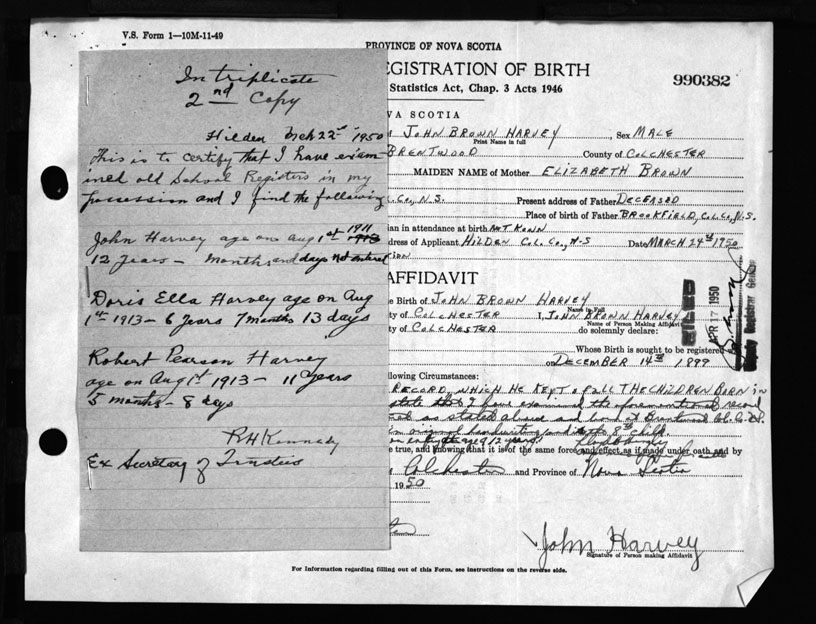 V.S. Form 1—10M-11-49
PROVINCE OF NOVA SCOTIA
EGISTRATION OF BIRTH
990382
Statistics Act, Chap. 3 Acts 1946
In triplicate
2nd Copy
Hilden Mch 22nd 1950
This is to certify that I have exam
ined old School Registers in my
possession and I find the following
John Harvey age on Aug 1st 1911 1913
12 years – months and days not entered
Doris Ella Harvey age on Aug
1st 1913 – 6 years 7 months 13 days
Robert Pearson Harvey
age on Aug 1st 1913 – 11 years
5 months – 8 days
R H Kennedy
Ex Secretary of Trustees
VA SCOTIA
JOHN BROWN HARVEY, Sex MALE
Print Name in full
BRENTWOOD County of COLCHESTER
MAIDEN NAME of Mother ELIZABETH BROWN
Co., N.S. Present address of Father DECEASED
Place of birth of Father BROOKFIELD, COL. CO., N.S.
ian in attendance at birth NOT KNOWN
dress of Applicant HILDEN COL. CO., N.S Date MARCH 24th 1950
ION
AFFIDAVIT
e Birth of JOHN BROWN HARVEY
Name in Full
ty of COLCHESTER I, JOHN BROWN HARVEY
Name of Person Making Affidavit
ty of COLCHESTER do solemnly declare:
Whose Birth is sought to be registered
on DECEMBER 14th 1899
llowing Circumstances:
RECORD, WHICH HE KEPT OF ALL THE CHILDREN BORN IN
state that I have examined the aforementioned record
as stated above and born at Brentwood Col. Co. N.S.
in original handwriting and is of 8th child
age 12 years.
e true, and knowing that it is of the same force and effect as if made under oath and by
Colchester and Province of Nova Scotia
1950
John Harvey
Signature of Person making Affidavit
FILED
APR 17 1950
Deputy Registrar General
For information regarding filling out of this Form, see instructions on the reverse side.